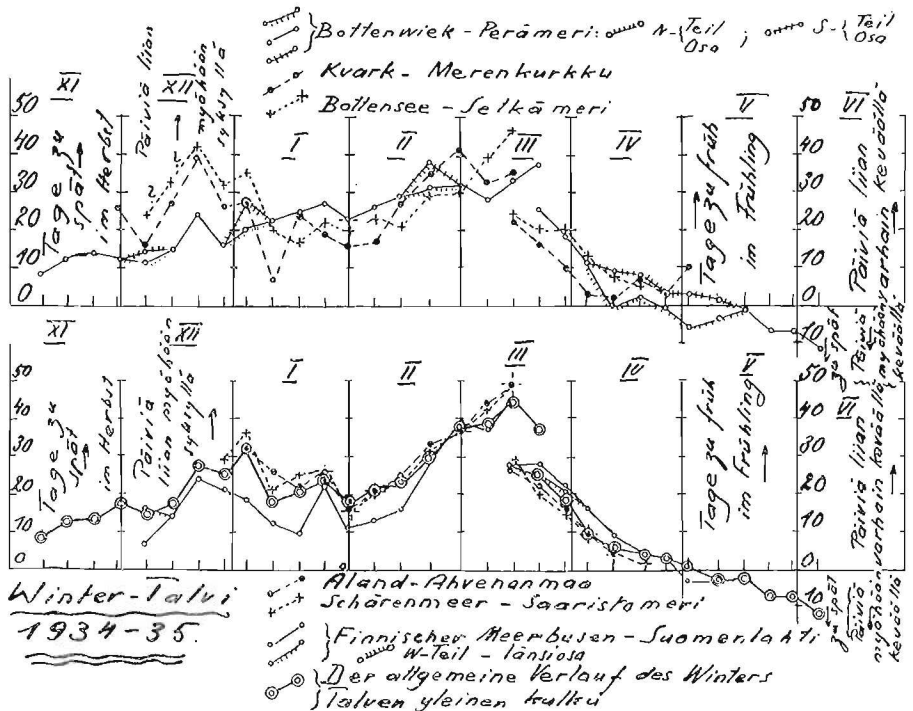 Bottenwiek - Perämeri: N-{Teil Osa ; S-{Teil Osa
Kvark - Merenkurkku
Bottensee - Selkämeri
XI XII I II III IV V VI
50 40 30 20 10 0
Tage zu spät im Herbst
Päiviä liian myöhään syksyllä
1.
2.
Tage zu früh im Frühling
50 40 30 20 10 0 10
Päiviä liian varhain keväällä
zu spät
Päiviä myöhään keväällä
XI XII I II III IV V VI
50 40 30 20 10 0
Tage zu spät im Herbst
Päiviä liian myöhään syksyllä
Tage zu früh im Frühling
50 40 30 20 10 0 10
Päiviä liian varhain keväällä
zu spät
Päiviä myöhään keväällä
Winter-Talvi
1934-35.
Åland-Ahvenanmaa
Schärenmeer - Saaristomeri
Finnischer Meerbusen - Suomenlahti
W-Teil - länsiosa
Der allgemeine Verlauf des Winters
Talven yleinen kulku